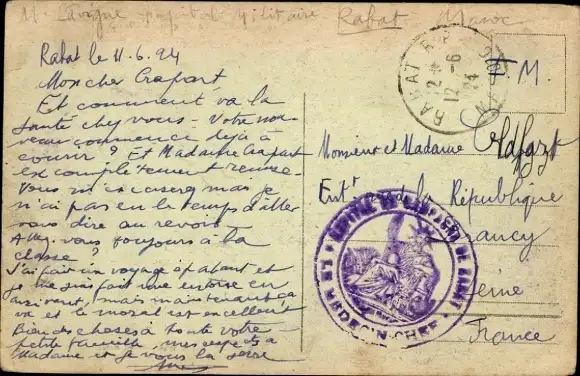 M. Lavigne hopital militaire Rabat Maroc
Rabat le 11.6.24
Mon cher Crapart,
Et comment va la
santé chez vous - Votre nou-
veau commence déjà à
courir ? Et Madame Crapart
est complètement remise -
Vous m'excuserez mais je
n'ai pas eu le temps d'aller
vous dire au revoir.
Allez-vous toujours à la
classe ?
J'ai fait un voyage épatant et
je me suis fait une entorse en
arrivant, mais maintenant ça
va et le moral est excellent
Bien des choses à toute votre
petite famille, mes respects à
Madame et je vous la serre
RABAT
12 -6
24
F.M.
Monsieur et Madame
Entr de la République
Seine
France
MEDECIN CHEF